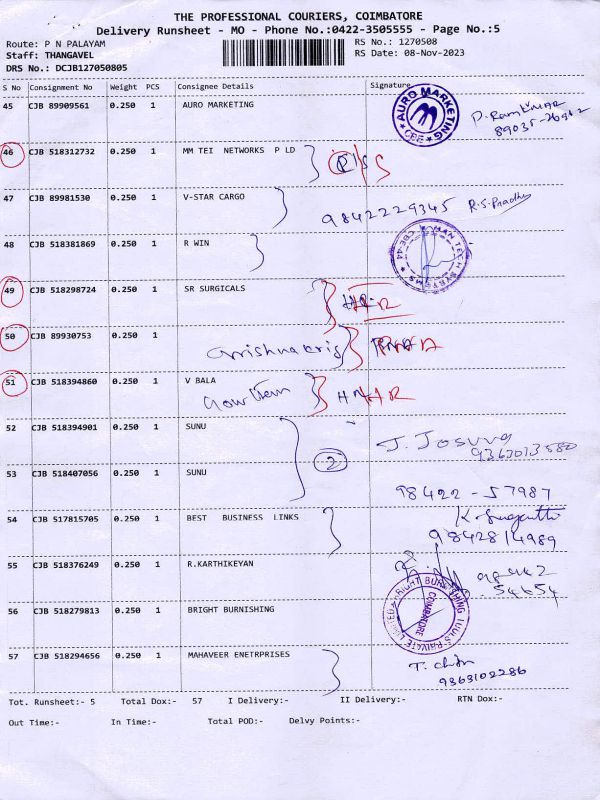 THE PROFESSIONAL COURIERS, COIMBATORE
Delivery Runsheet - MO - Phone No.:0422-3505555 - Page No.:5
Route: P N PALAYAM
RS No.: 1270508
Staff: THANGAVEL
RS Date: 08-Nov-2023
DRS No.: DCJB127050805
S No Consignment No Weight PCS Consignee Details Signature
45 CJB 89909561 0.250 1 AURO MARKETING
AURO MARKETING CBE
46 CJB 518312732 0.250 1 MM TEI NETWORKS P LD
47 CJB 89981530 0.250 1 V-STAR CARGO 9842229345 R.S.Pradhu
48 CJB 518381869 0.250 1 R WIN
CBE-44
49 CJB 518298724 0.250 1 SR SURGICALS
50 CJB 89930753 0.250 1
51 CJB 518394860 0.250 1 V BALA
52 CJB 518394901 0.250 1 SUNU
2 J. Josuva
53 CJB 518407056 0.250 1 SUNU
98422-57987
54 CJB 517815705 0.250 1 BEST BUSINESS LINKS
9842814989
55 CJB 518376249 0.250 1 R.KARTHIKEYAN
54654
56 CJB 518279813 0.250 1 BRIGHT BURNISHING
BRIGHT BURNISHING TOOLS PRIVATE LIMITED COIMBATORE
57 CJB 518294656 0.250 1 MAHAVEER ENETRPRISES
9363102286
Tot. Runsheet:- 5 Total Dox:- 57 I Delivery:- II Delivery:- RTN Dox:-
Out Time:- In Time:- Total POD:- Delvy Points:-